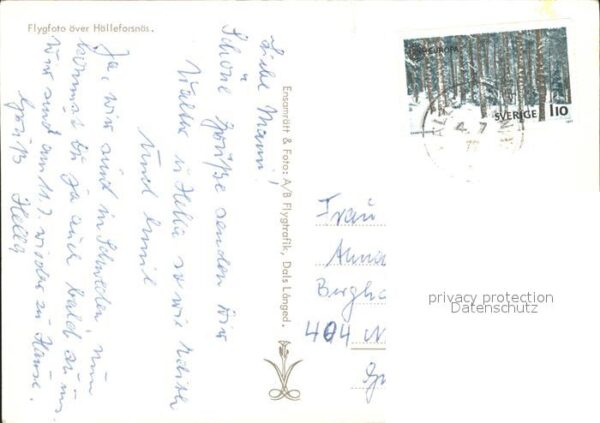 Flygfoto över Hälleforsnäs.
Liebe Mammi!
Schöne Grüße senden wir
Walter u Hella so wie Edith
und Emil
Ja, wir sind in Schweden, nun
kommst du ja auch bald zu uns.
Wir sind am 11.7. wieder zu Hause.
Gruß Hella
Ensamrätt & Foto: A/B Flygtrafik, Dals Långed.
EUROPA
SVERIGE 110
4.7
Frau
Anna
404 N
privacy protection
Datenschutz